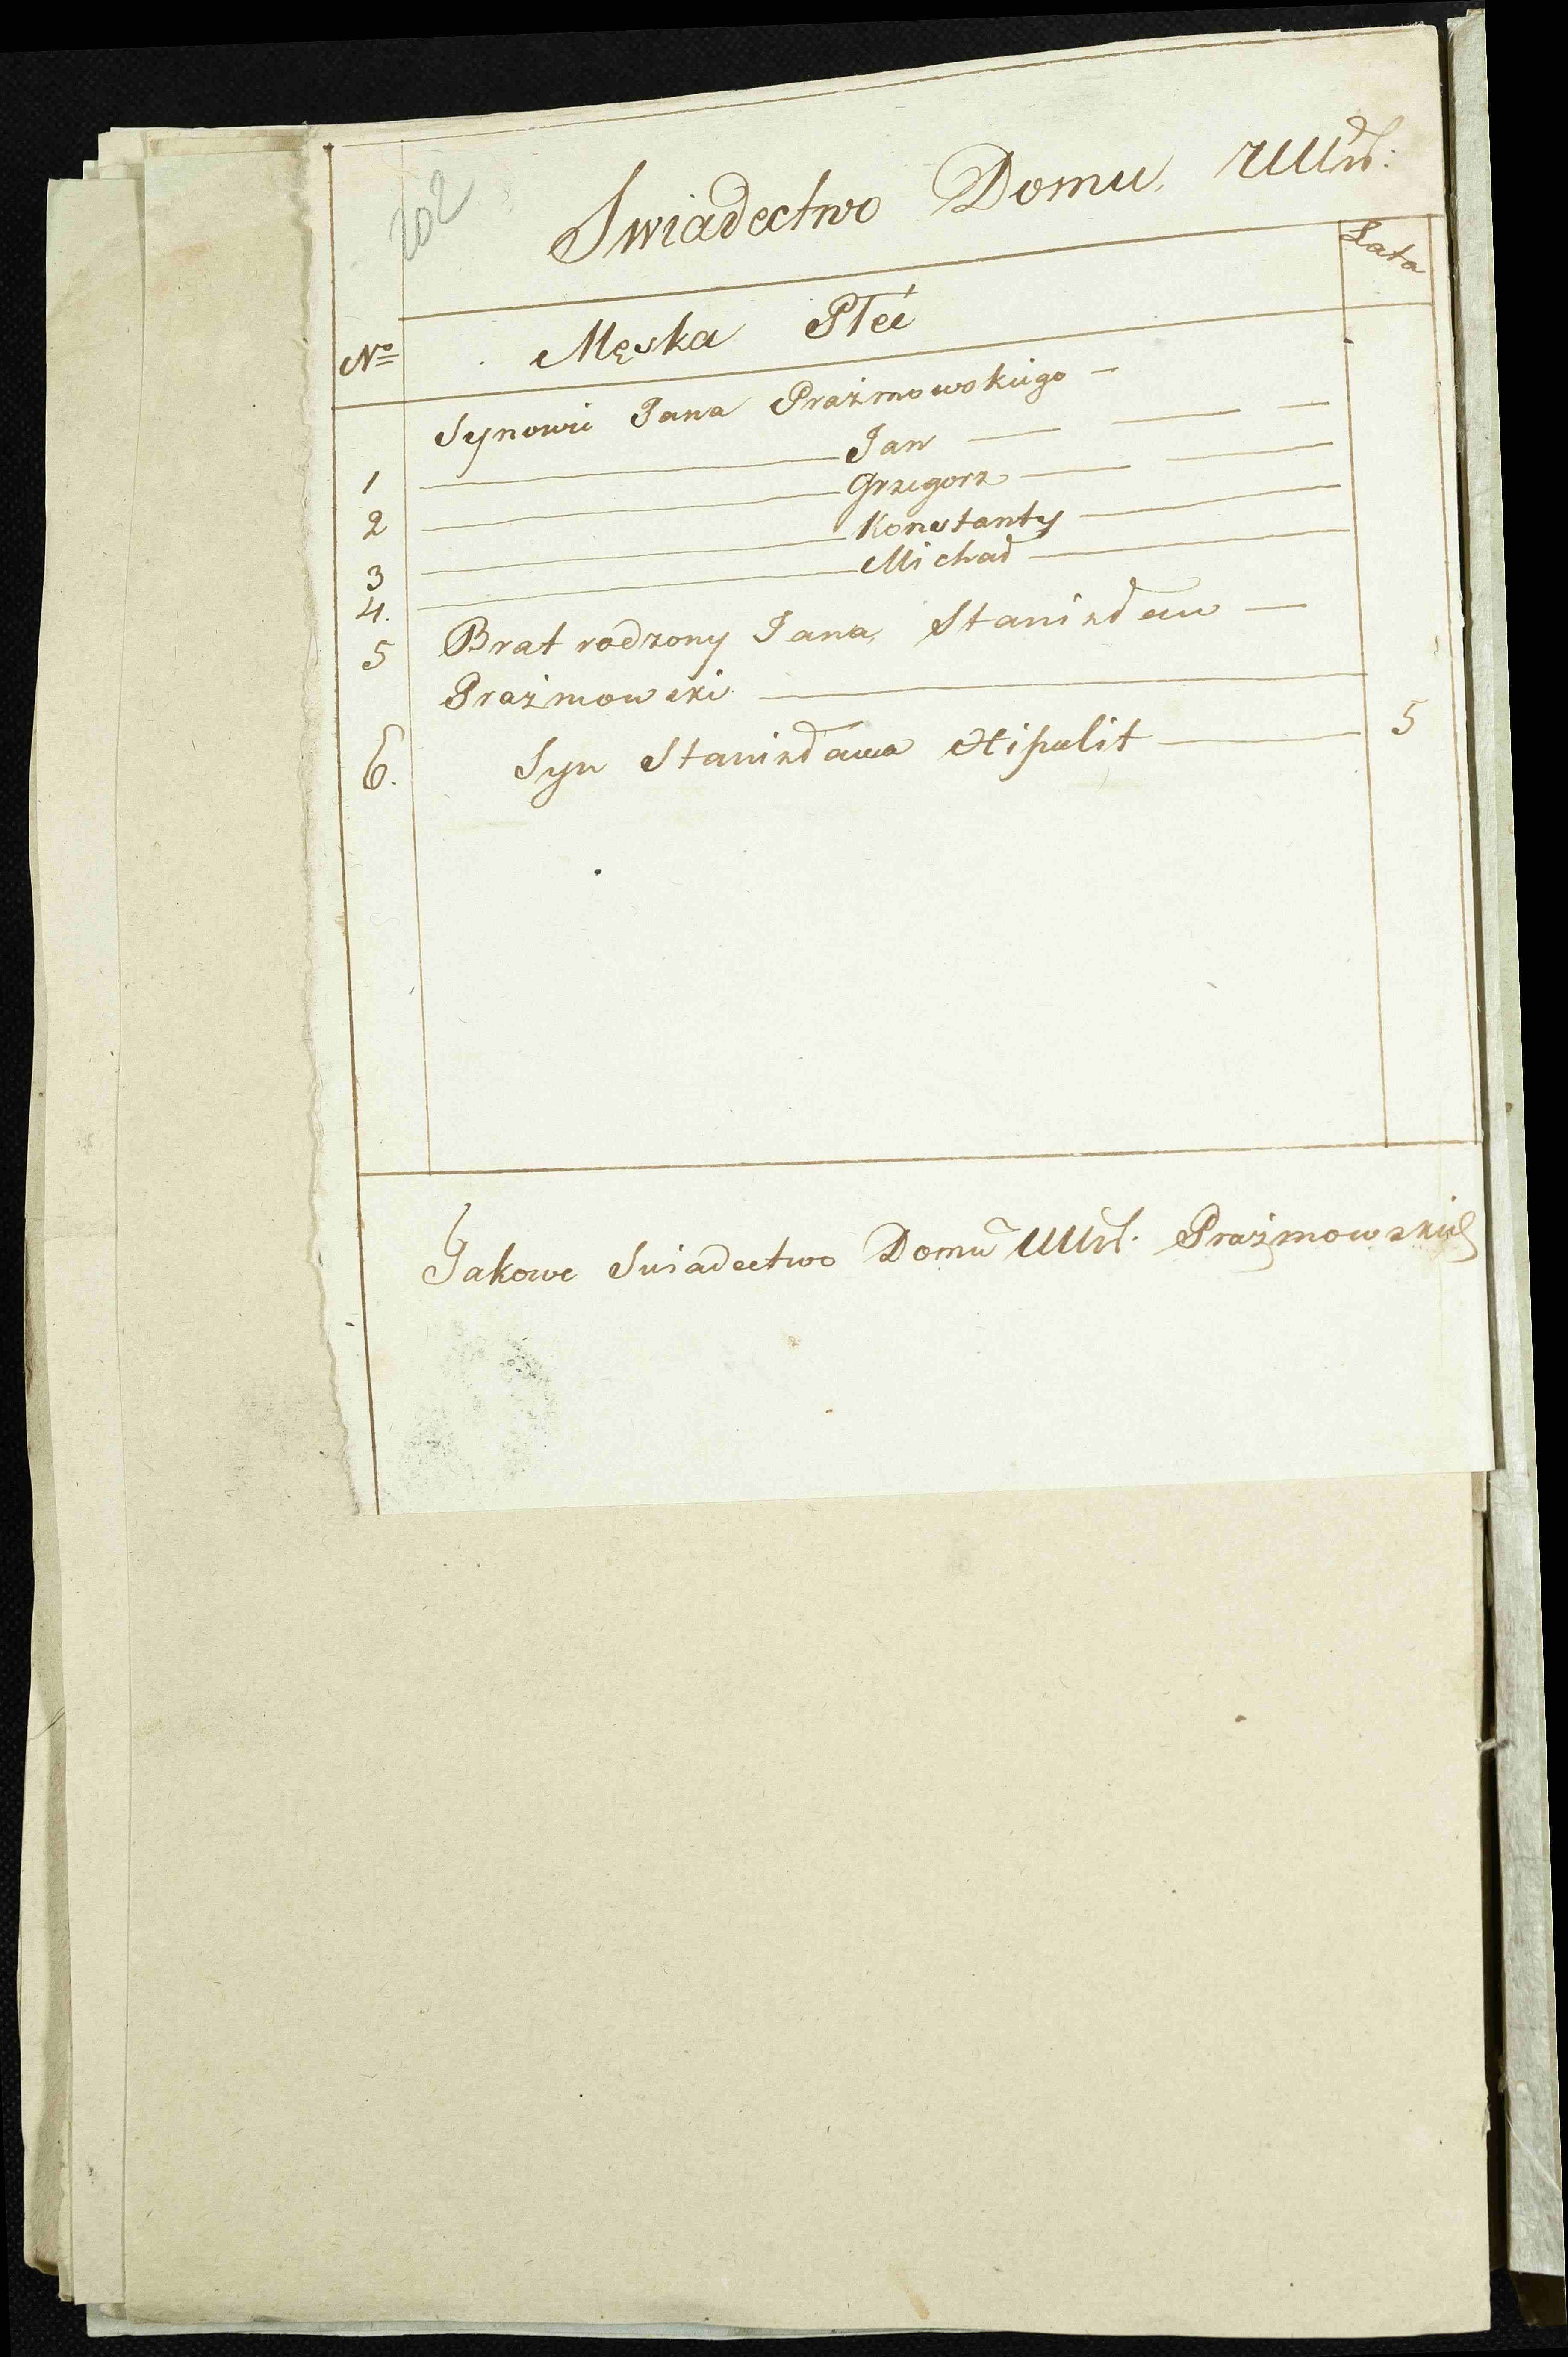 202
Swiadectwo Domu WW:
Lata
No Męska Płeć
Synowie Jana Prażmowskiego —
1 Jan
2 Grzegorz
3 Konstanty
4. Michał
5 Brat rodzony Jana, Stanisław —
Prażmowski
6. Syn Stanisława Hipolit 5
Jakowe Swiadectwo Domu Prażmowskich